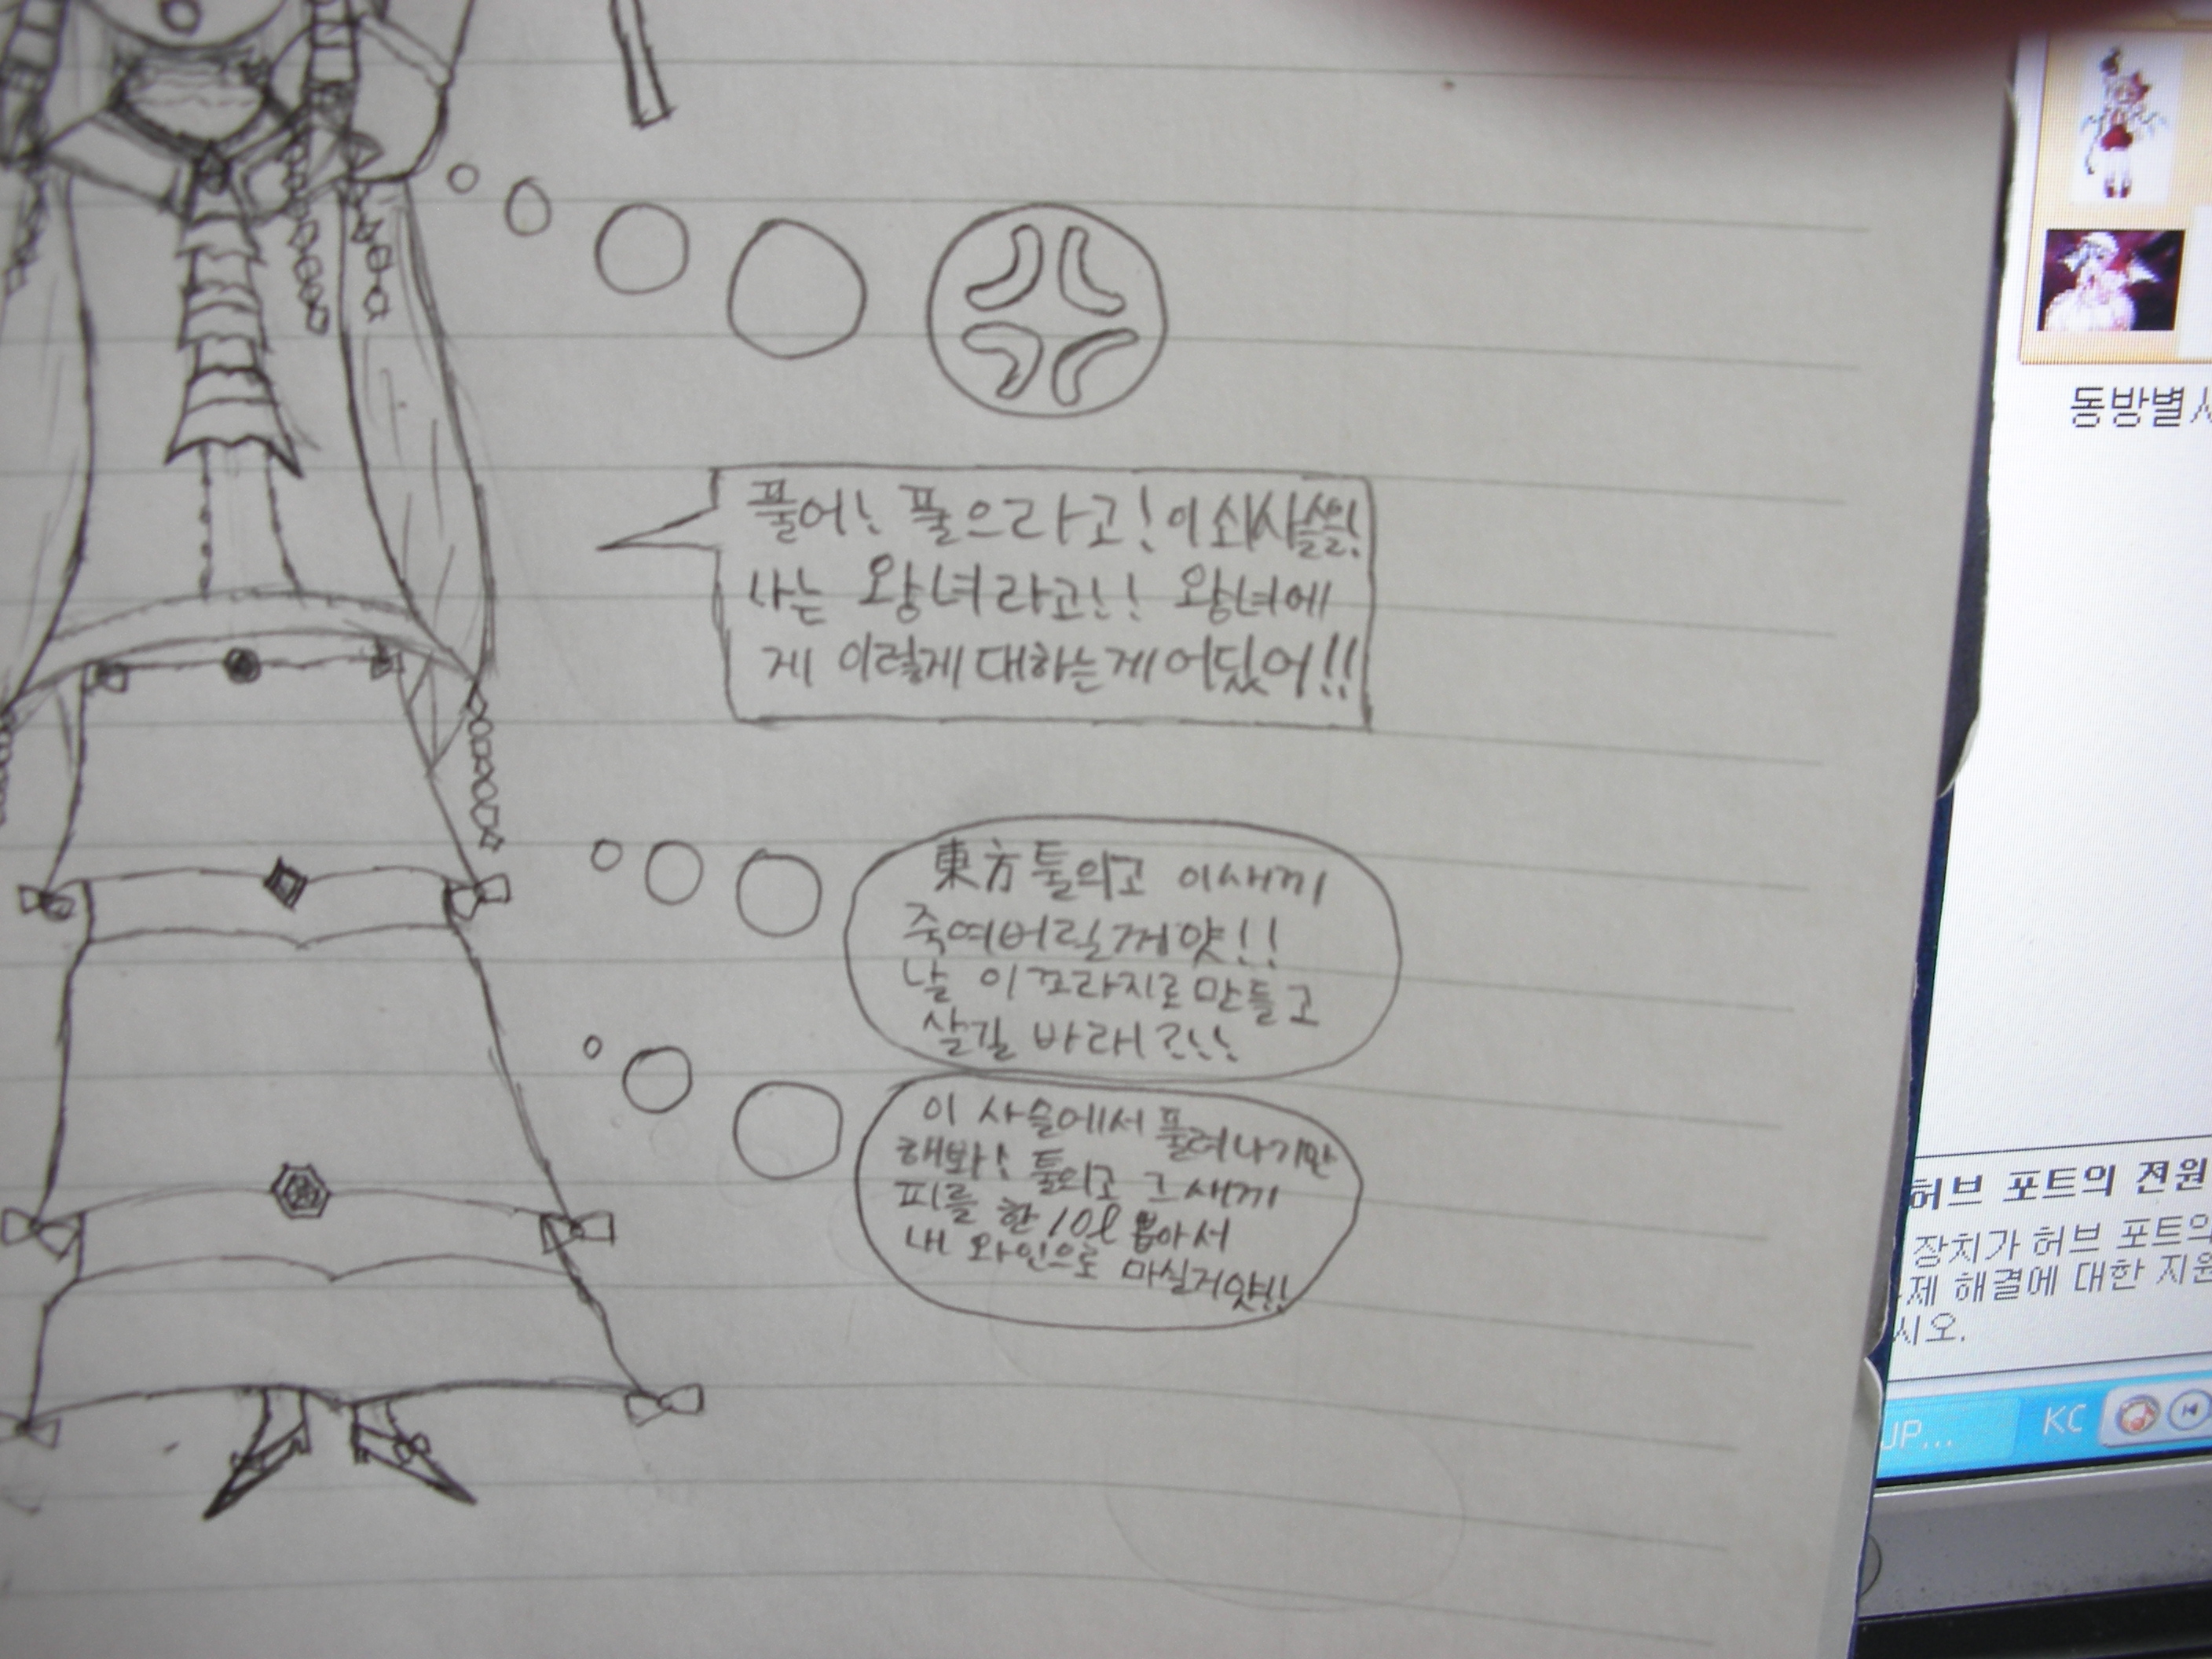 풀어! 풀으라고! 이 쇠사슬을!
나는 왕녀라고!! 왕녀에
게 이렇게 대하는게 어딨어!!
東方 툴의고 이새끼
죽여버릴꺼얏!!
날 이 꼬라지로 만들고
살길 바래?!!!
이 사슬에서 풀려나기만
해봐! 툴의고 그 새끼
피를 한 10ℓ 뽑아서
내 와인으로 마실거얏!!
동방별
허브 포트의 전원
장치가 허브 포트의
제 해결에 대한 지원
시오.
JP...
KC